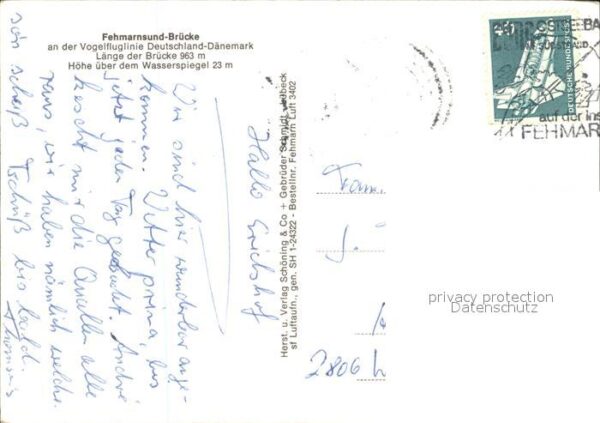 Fehmarnsund-Brücke
an der Vogelfluglinie Deutschland-Dänemark
Länge der Brücke 963 m
Höhe über dem Wasserspiegel 23 m
Hallo Erichshof
Wir sind hier wunderbar ange-
kommen. Wetter prima, bis
jetzt jeden Tag gebadet. André
kescht mir die Quallen alle
raus, wir haben nämlich welche.
Tschüß bis bald.
Thomas
Herst. u. Verlag Schöning & Co + Gebrüder Schmidt, Lübeck
sf Luftaufn., gen. SH 1-24322 - Bestellnr. Fehmarn Luft 3402
Fam.
2806
40
DEUTSCHE BUNDESPOST
OSTSEEBA
SÜDSTRAND
auf der Ins
FEHMAR
privacy protection
Datenschutz